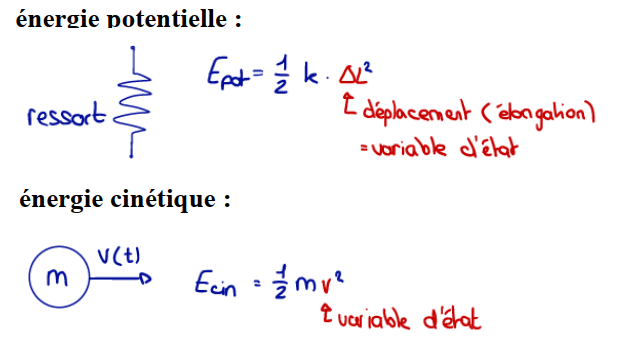 énergie potentielle :
Epot = 1/2 k · ΔL²
ressort
déplacement (élongation)
= variable d'état
énergie cinétique :
V(t)
m
Ecin = 1/2 m v²
variable d'état